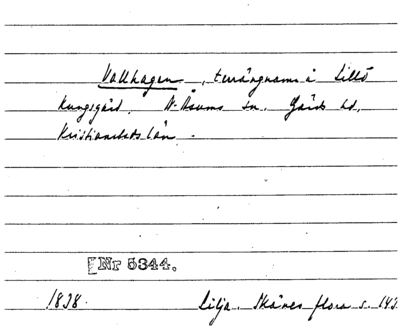 Vallhagen, terrängnamn å Lillö
Kungsgård, N. Åsums sn. Gärds hd,
Kristianstads län.
Nr 5344.
1838. Lilja. Skånes flora s. 143